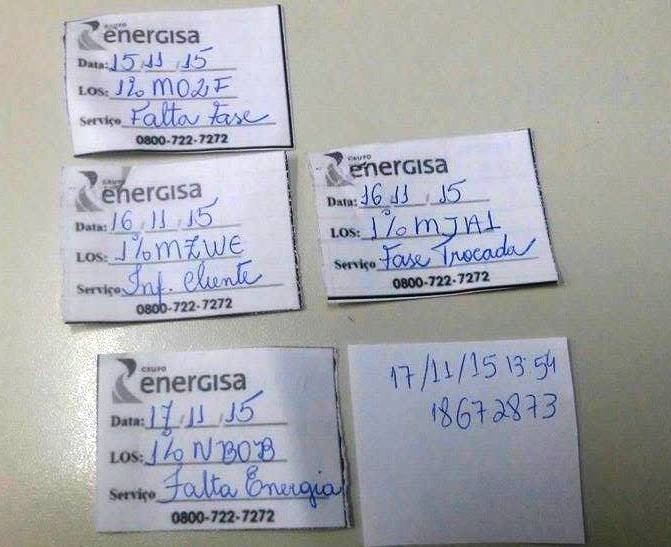 GRUPO
energisa
Data: 15 / 11 / 15
LOS: 1% MO2F
Serviço Falta Fase
0800-722-7272
GRUPO
energisa
Data: 16 / 11 / 15
LOS: 1% MZWE
Serviço Inf. Cliente
0800-722-7272
GRUPO
energisa
Data: 16 / 11 / 15
LOS: 1% MJA1
Serviço Fase Trocada
0800-722-7272
GRUPO
energisa
Data: 17 / 11 / 15
LOS: 1% NBOB
Serviço Falta Energia
0800-722-7272
17/11/15 13:54
18672873